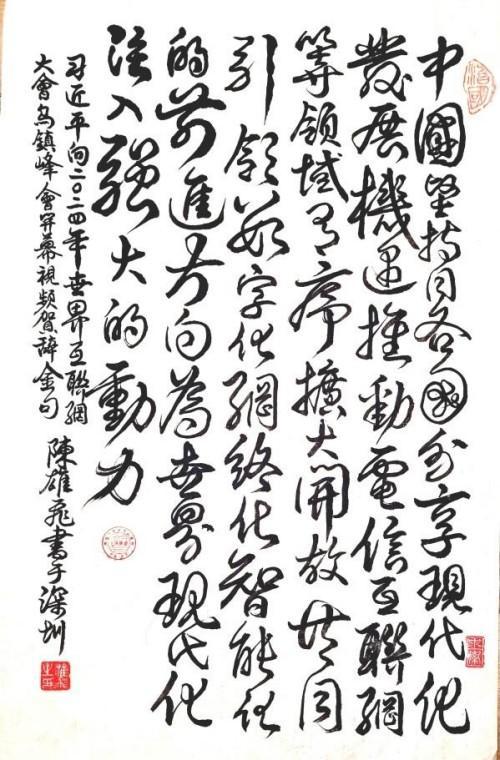 中國堅持同各國分享現代化
發展機遇推動電信互聯網
等領域有序擴大開放共同
引領數字化網絡化智能化
的前進方向為世界現代化
注入強大的動力
习近平向二〇二四年世界互聯網
大會烏鎮峰會開幕視頻賀辭金句 陳雄飛書于深圳